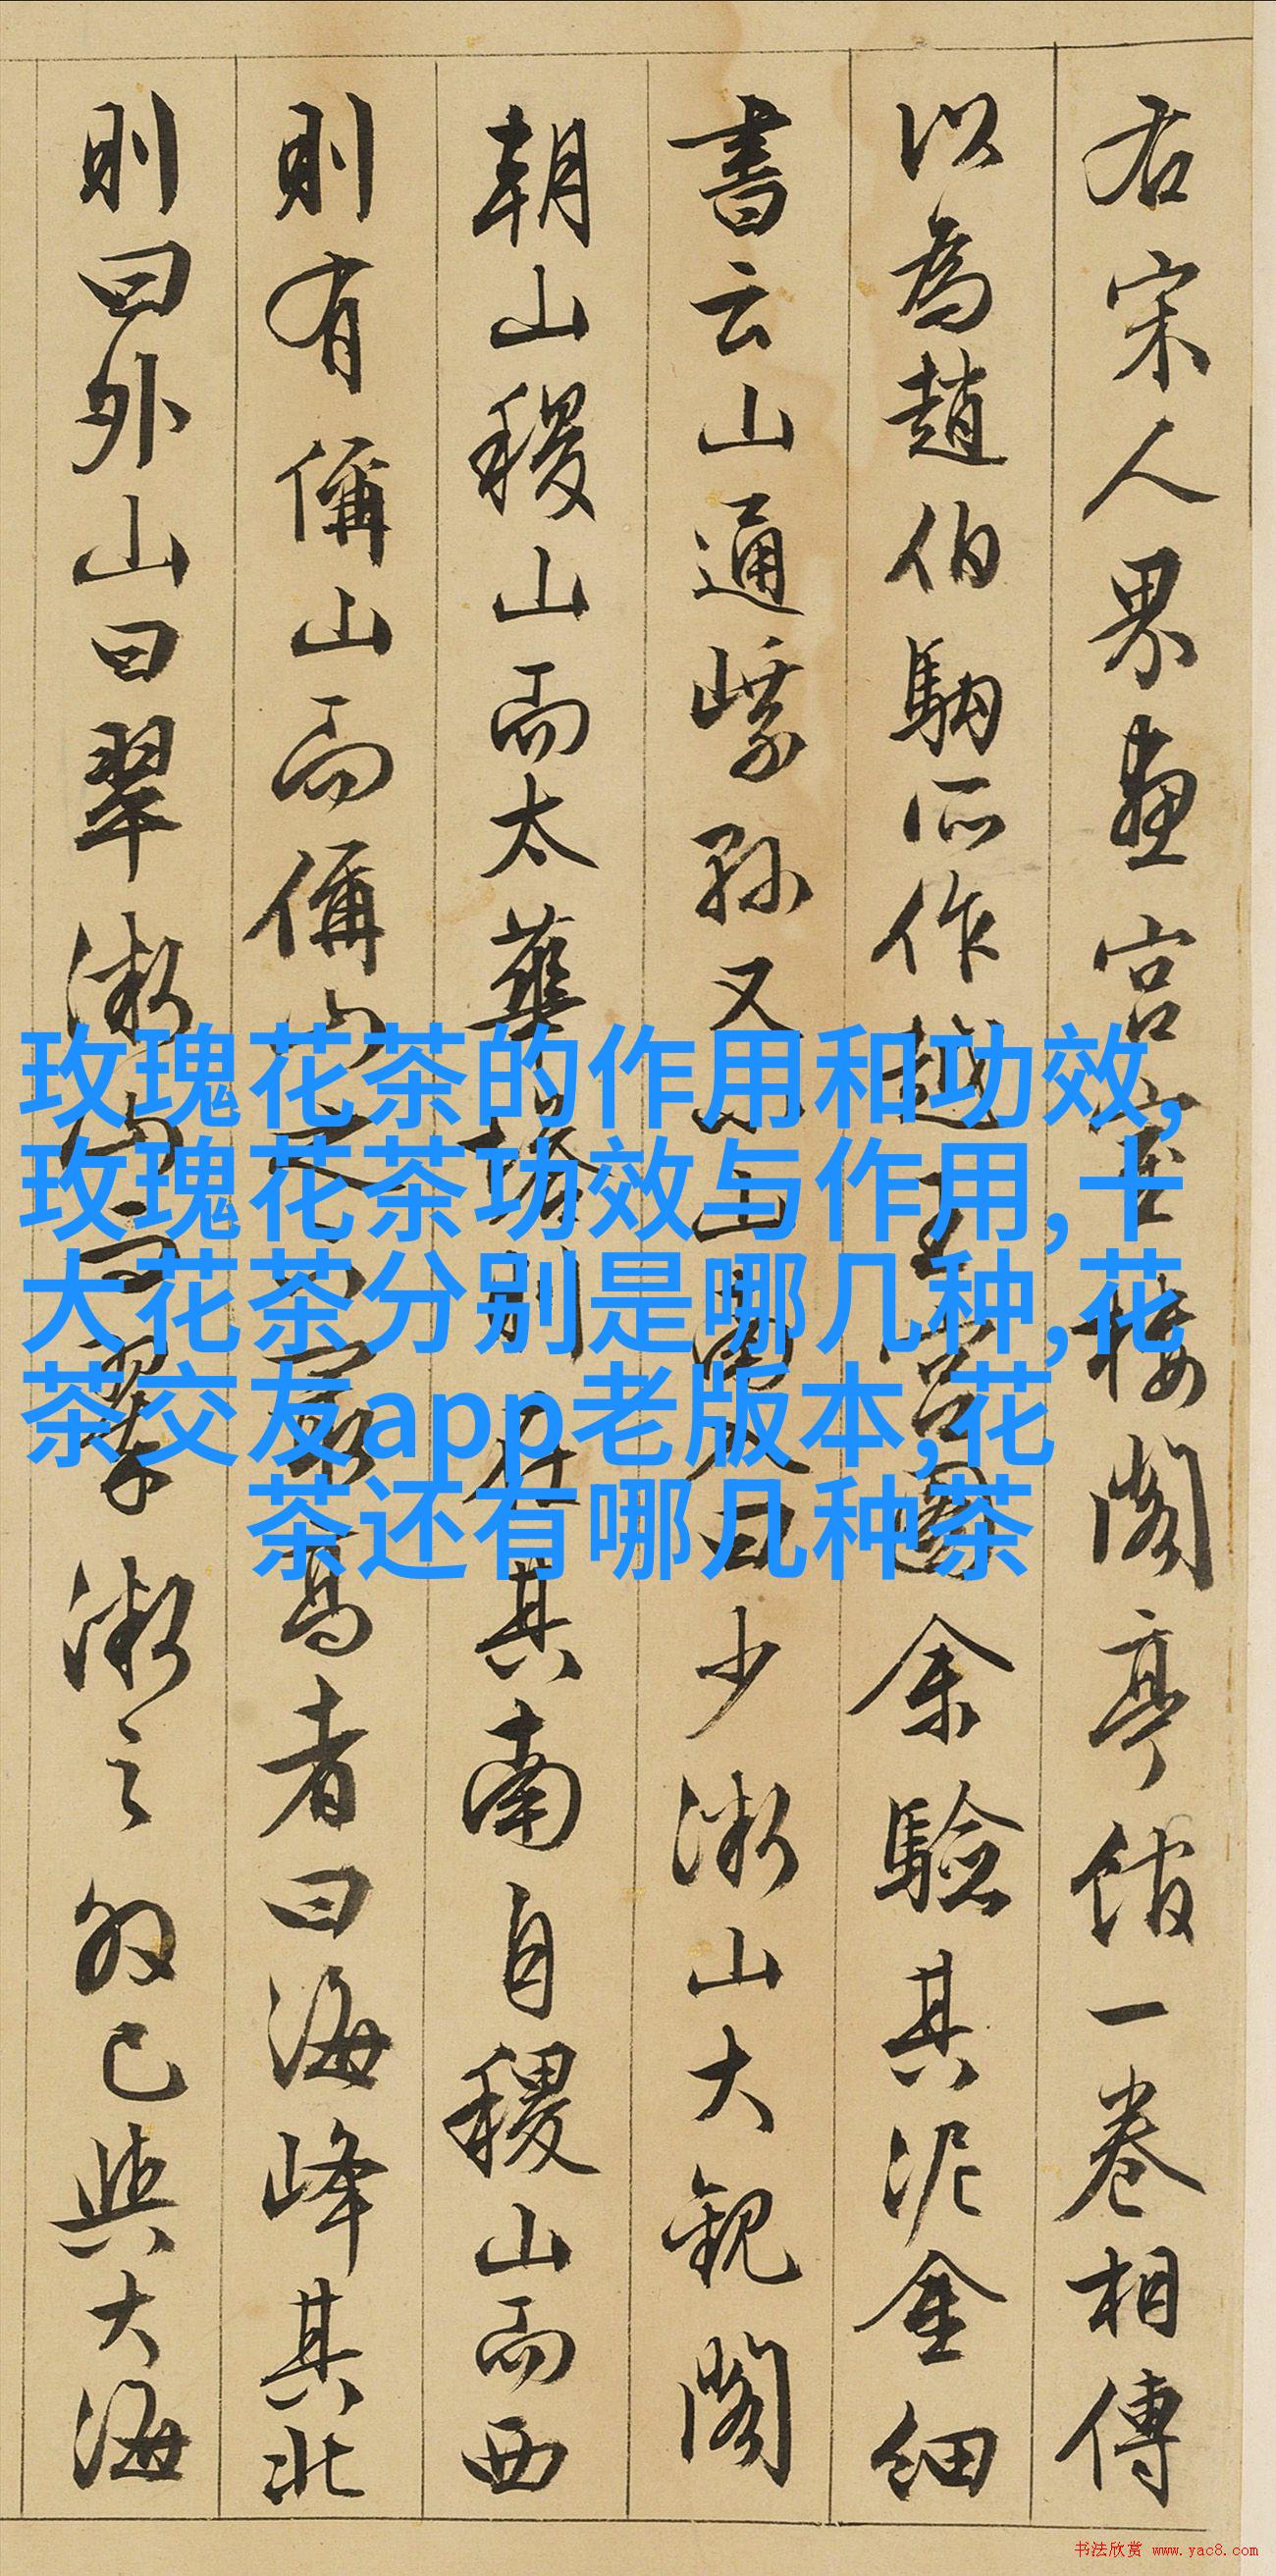 右宋人界畫宮室樓閣亭館一卷相傳
以為趙伯駒所作越王宮圖余驗其泥金細
書云山通嶧孫又
少漱山大觀閣
朝山稷山而太華
其南自稷山而西
則有偁山而偁山
高者曰海峰其北
則曰外山曰翠
漱之外已與大海
玫瑰花茶的作用和功效,
玫瑰花茶功效与作用,十
大花茶分别是哪几种,花
茶交友app老版本,花
茶还有哪几种茶
书法欣赏 www.yac8.com